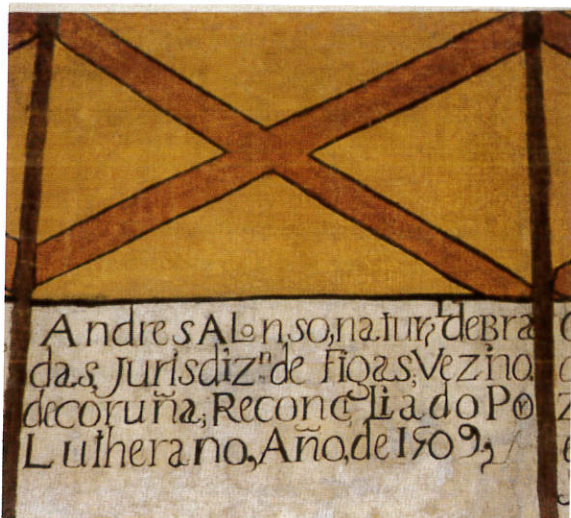 Andres ALonso, natur.l de Bra
das, Jurisdiz.n de Figas, Vezino
de coruña, ReconciLiado Por
Lutherano, Año, de 1509,